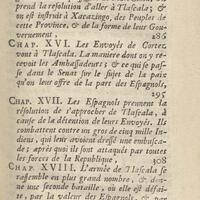 prend la resolution d'aller à Tlascala ; &
on est instruit à Xacazingo, des Peuples de
cette Province, & de la forme de leur Gou-
vernement. 286
CHAP. XVI. Les Envoyés de Cortez
vont à Tlascala. La maniere dont on y re-
çoit les Ambassadeurs ; & ce qui se pas-
se dans le Senat sur le sujet de la paix
qu'on leur offre de la part des Espagnols,
295
CHAP. XVII. Les Espagnols prennent la
résolution de s'approcher de Tlascala, à
cause de la détention de leurs Envoyés. Ils
combattent contre un gros de cinq mille In-
diens, qui leur avoient dressé une embusca-
de : après quoi ils sont attaqués par toutes
les forces de la Republique, 308
CHAP. XVIII. L'armée de Tlascala se
rassemble en plus grand nombre, & don-
ne une seconde bataille, où elle est défai-
te, par la valeur des Espagnols, & par